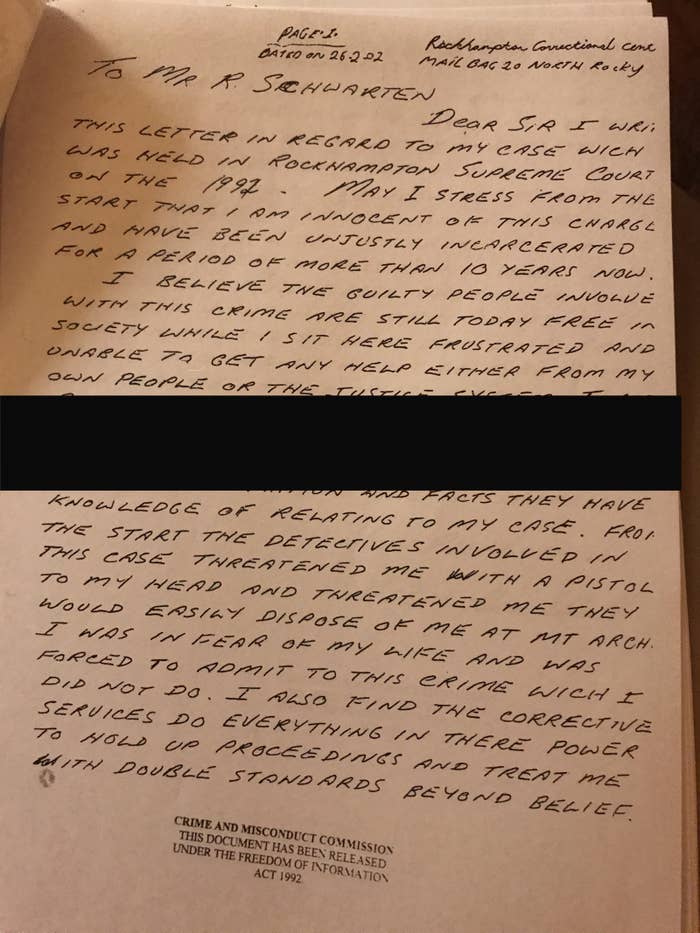 PAGE 1.
DATED ON 26-2-02
Rockhampton Correctional Cent
MAIL BAG 20 NORTH Rocky
TO MR R. SCHWARTEN
Dear SIR I WRI
THIS LETTER IN REGARD TO MY CASE WICH
WAS HELD IN ROCKHAMPTON SUPREME COURT
ON THE 1992. MAY I STRESS FROM THE
START THAT I AM INNOCENT OF THIS CHARGE
AND HAVE BEEN UNJUSTLY INCARCERATED
FOR A PERIOD OF MORE THAN 10 YEARS NOW.
I BELIEVE THE GUILTY PEOPLE INVOLVE
WITH THIS CRIME ARE STILL TODAY FREE IN
SOCIETY WHILE I SIT HERE FRUSTRATED AND
UNABLE TO GET ANY HELP EITHER FROM MY
OWN PEOPLE OR THE JUSTICE SYSTEM. I
AND FACTS THEY HAVE
KNOWLEDGE OF RELATING TO MY CASE. FRO
THE START THE DETECTIVES INVOLVED IN
THIS CASE THREATENED ME WITH A PISTOL
TO MY HEAD AND THREATENED ME THEY
WOULD EASILY DISPOSE OF ME AT MT ARCH.
I WAS IN FEAR OF MY LIFE AND WAS
FORCED TO ADMIT TO THIS CRIME WICH I
DID NOT DO. I ALSO FIND THE CORRECTIVE
SERVICES DO EVERYTHING IN THERE POWER
TO HOLD UP PROCEEDINGS AND TREAT ME
WITH DOUBLE STANDARDS BEYOND BELIEF.
CRIME AND MISCONDUCT COMMISSION
THIS DOCUMENT HAS BEEN RELEASED
UNDER THE FREEDOM OF INFORMATION
ACT 1992